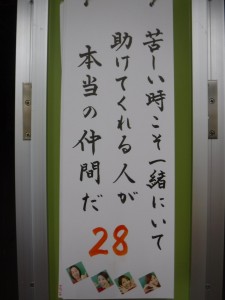 苦しい時こそ一緒にいて
助けてくれる人が
本当の仲間だ
28